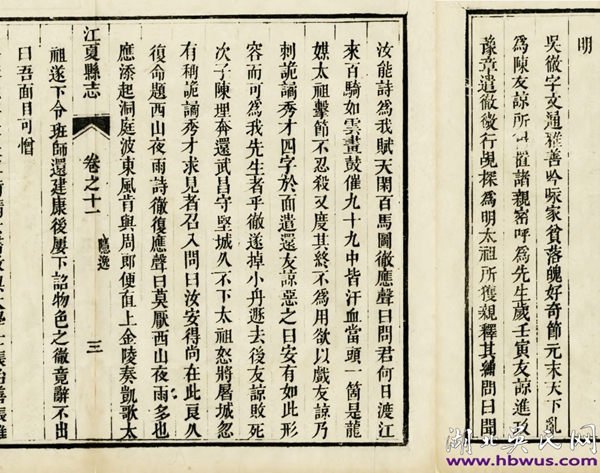 明
吳徹字文通雅善吟咏家貧落魄好奇節元末天下亂
為陳友諒所置諸親密呼為先生歲壬寅友諒進攻
豫章遣徹微行覘探為明太祖所獲親釋其縛問曰聞
汝能詩為我賦天閑百馬圖徹應聲曰問君何日渡江
來百騎如雲畫鼓催九十九中皆汗血當頭一箇是龍
媒太祖擊節不忍殺又度其終不為用欲以戲友諒乃
刺詭譎秀才四字於面遣還友諒惡之曰安有如此形
容而可為我先生者乎徹遂掉小舟遯去後友諒敗死
次子陳理奔還武昌守堅城久不下太祖怒將屠城忽
有稱詭譎秀才求見者召入問曰汝安得尚在此頁久
復命題西山夜雨詩徹復應聲曰莫厭西山夜雨多也
應添起洞庭波東風肯與周郎便直上金陵奏凱歌太
江夏縣志
卷之十一
隱逸
三
祖遂下令班師還建康後屢下詔物色之徹竟辭不出
曰吾面目可憎
湖北吳氏网
www.hbwus.com